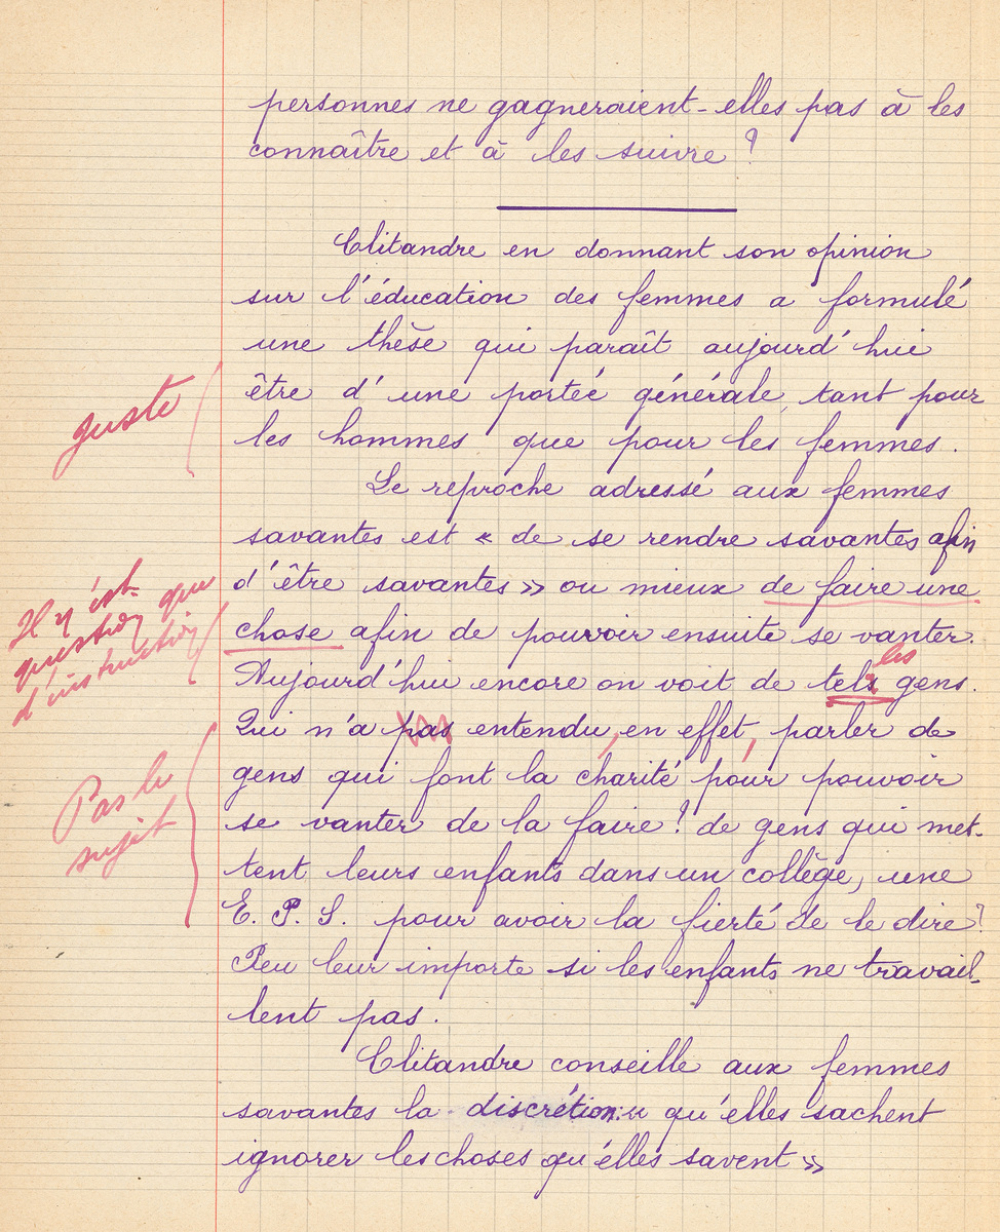 personnes ne gagneraient-elles pas à les
connaître et à les suivre ?
Clitandre en donnant son opinion
sur l'éducation des femmes a formulé
une thèse qui paraît aujourd'hui
être d'une portée générale, tant pour
les hommes que pour les femmes.
juste
Le reproche adressé aux femmes
savantes est « de se rendre savantes afin
d'être savantes » ou mieux de faire une
chose afin de pouvoir ensuite se vanter.
Il n'est
question que
d'instruction
les
Aujourd'hui encore on voit de tels gens.
Qui n'a pas entendu, en effet, parler de
gens qui font la charité pour pouvoir
se vanter de la faire ? de gens qui met-
tent leurs enfants dans un collège, une
E. P. S. pour avoir la fierté de le dire ?
Pas le
sujet
Peu leur importe si les enfants ne travail-
lent pas.
Clitandre conseille aux femmes
savantes la discrétion : « qu'elles sachent
ignorer les choses qu'elles savent »